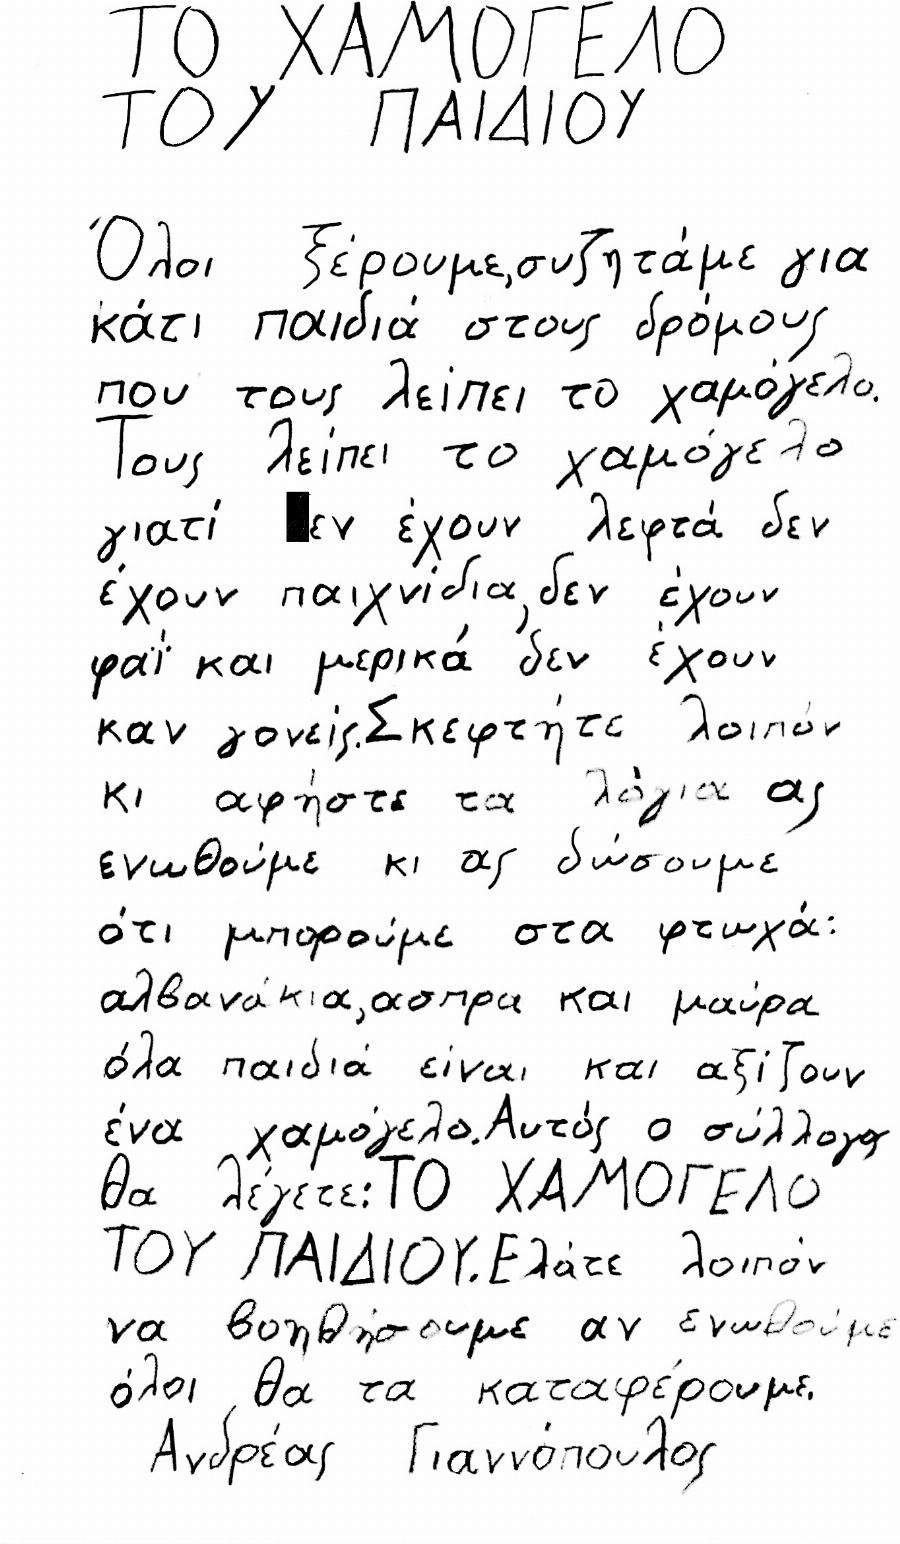 ΤΟ ΧΑΜΟΓΕΛΟ
ΤΟΥ ΠΑΙΔΙΟΥ
Όλοι ξέρουμε,συζητάμε για
κάτι παιδιά στους δρόμους
που τους λείπει το χαμόγελο.
Τους λείπει το χαμόγελο
γιατί εν έχουν λεφτά δεν
έχουν παιχνίδια,δεν έχουν
φαΐ και μερικά δεν έχουν
καν γονείς.Σκεφτήτε λοιπόν
κι αφήστε τα λόγια ας
ενωθούμε κι ας δώσουμε
ότι μπορούμε στα φτωχά:
αλβανάκια,ασπρα και μαύρα
όλα παιδιά είναι και αξίζουν
ένα χαμόγελο.Αυτός ο σύλλογος
θα λέγετε:ΤΟ ΧΑΜΟΓΕΛΟ
ΤΟΥ ΠΑΙΔΙΟΥ.Ελάτε λοιπόν
να βοηθήσουμε αν ενωθούμε
όλοι θα τα καταφέρουμε.
Ανδρέας Γιαννόπουλος